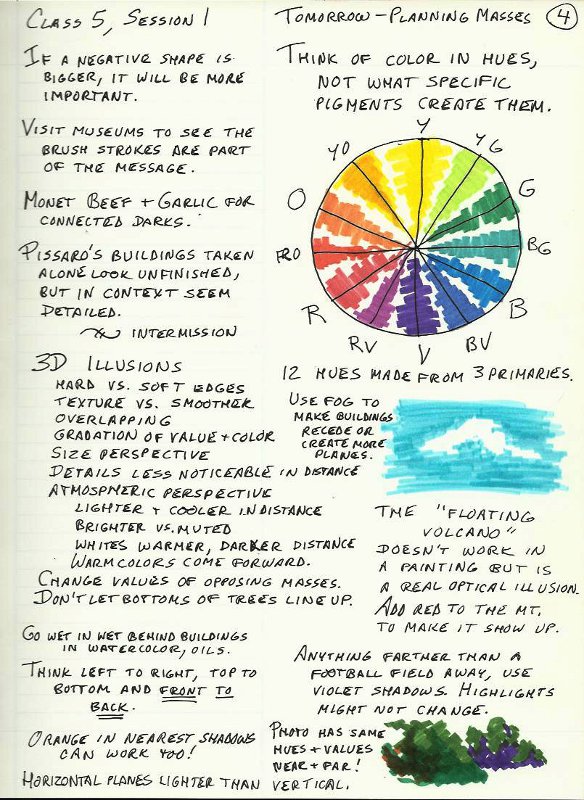 CLASS 5, SESSION 1
IF A NEGATIVE SHAPE IS
BIGGER, IT WILL BE MORE
IMPORTANT.
VISIT MUSEUMS TO SEE THE
BRUSH STROKES ARE PART
OF THE MESSAGE.
MONET BEEF + GARLIC FOR
CONNECTED DARKS.
PISSARO'S BUILDINGS TAKEN
ALONE LOOK UNFINISHED,
BUT IN CONTEXT SEEM
DETAILED.
INTERMISSION
3D ILLUSIONS
HARD VS. SOFT EDGES
TEXTURE VS. SMOOTHER
OVERLAPPING
GRADATION OF VALUE + COLOR
SIZE PERSPECTIVE
DETAILS LESS NOTICEABLE IN DISTANCE
ATMOSPHERIC PERSPECTIVE
LIGHTER + COOLER IN DISTANCE
BRIGHTER VS. MUTED
WHITES WARMER, DARKER DISTANCE
WARM COLORS COME FORWARD.
CHANGE VALUES OF OPPOSING MASSES.
DON'T LET BOTTOMS OF TREES LINE UP.
GO WET IN WET BEHIND BUILDINGS
IN WATERCOLOR, OILS.
THINK LEFT TO RIGHT, TOP TO
BOTTOM AND FRONT TO
BACK.
ORANGE IN NEAREST SHADOWS
CAN WORK TOO!
HORIZONTAL PLANES LIGHTER THAN VERTICAL.
TOMORROW - PLANNING MASSES 4
THINK OF COLOR IN HUES,
NOT WHAT SPECIFIC
PIGMENTS CREATE THEM.
Y
YG
G
BG
B
BV
V
RV
R
RO
O
YO
12 HUES MADE FROM 3 PRIMARIES.
USE FOG TO
MAKE BUILDINGS
RECEDE OR
CREATE MORE
PLANES.
THE "FLOATING
VOLCANO"
DOESN'T WORK IN
A PAINTING BUT IS
A REAL OPTICAL ILLUSION.
ADD RED TO THE MT.
TO MAKE IT SHOW UP.
ANYTHING FARTHER THAN A
FOOTBALL FIELD AWAY, USE
VIOLET SHADOWS. HIGHLIGHTS
MIGHT NOT CHANGE.
PHOTO HAS SAME
HUES + VALUES
NEAR + FAR!